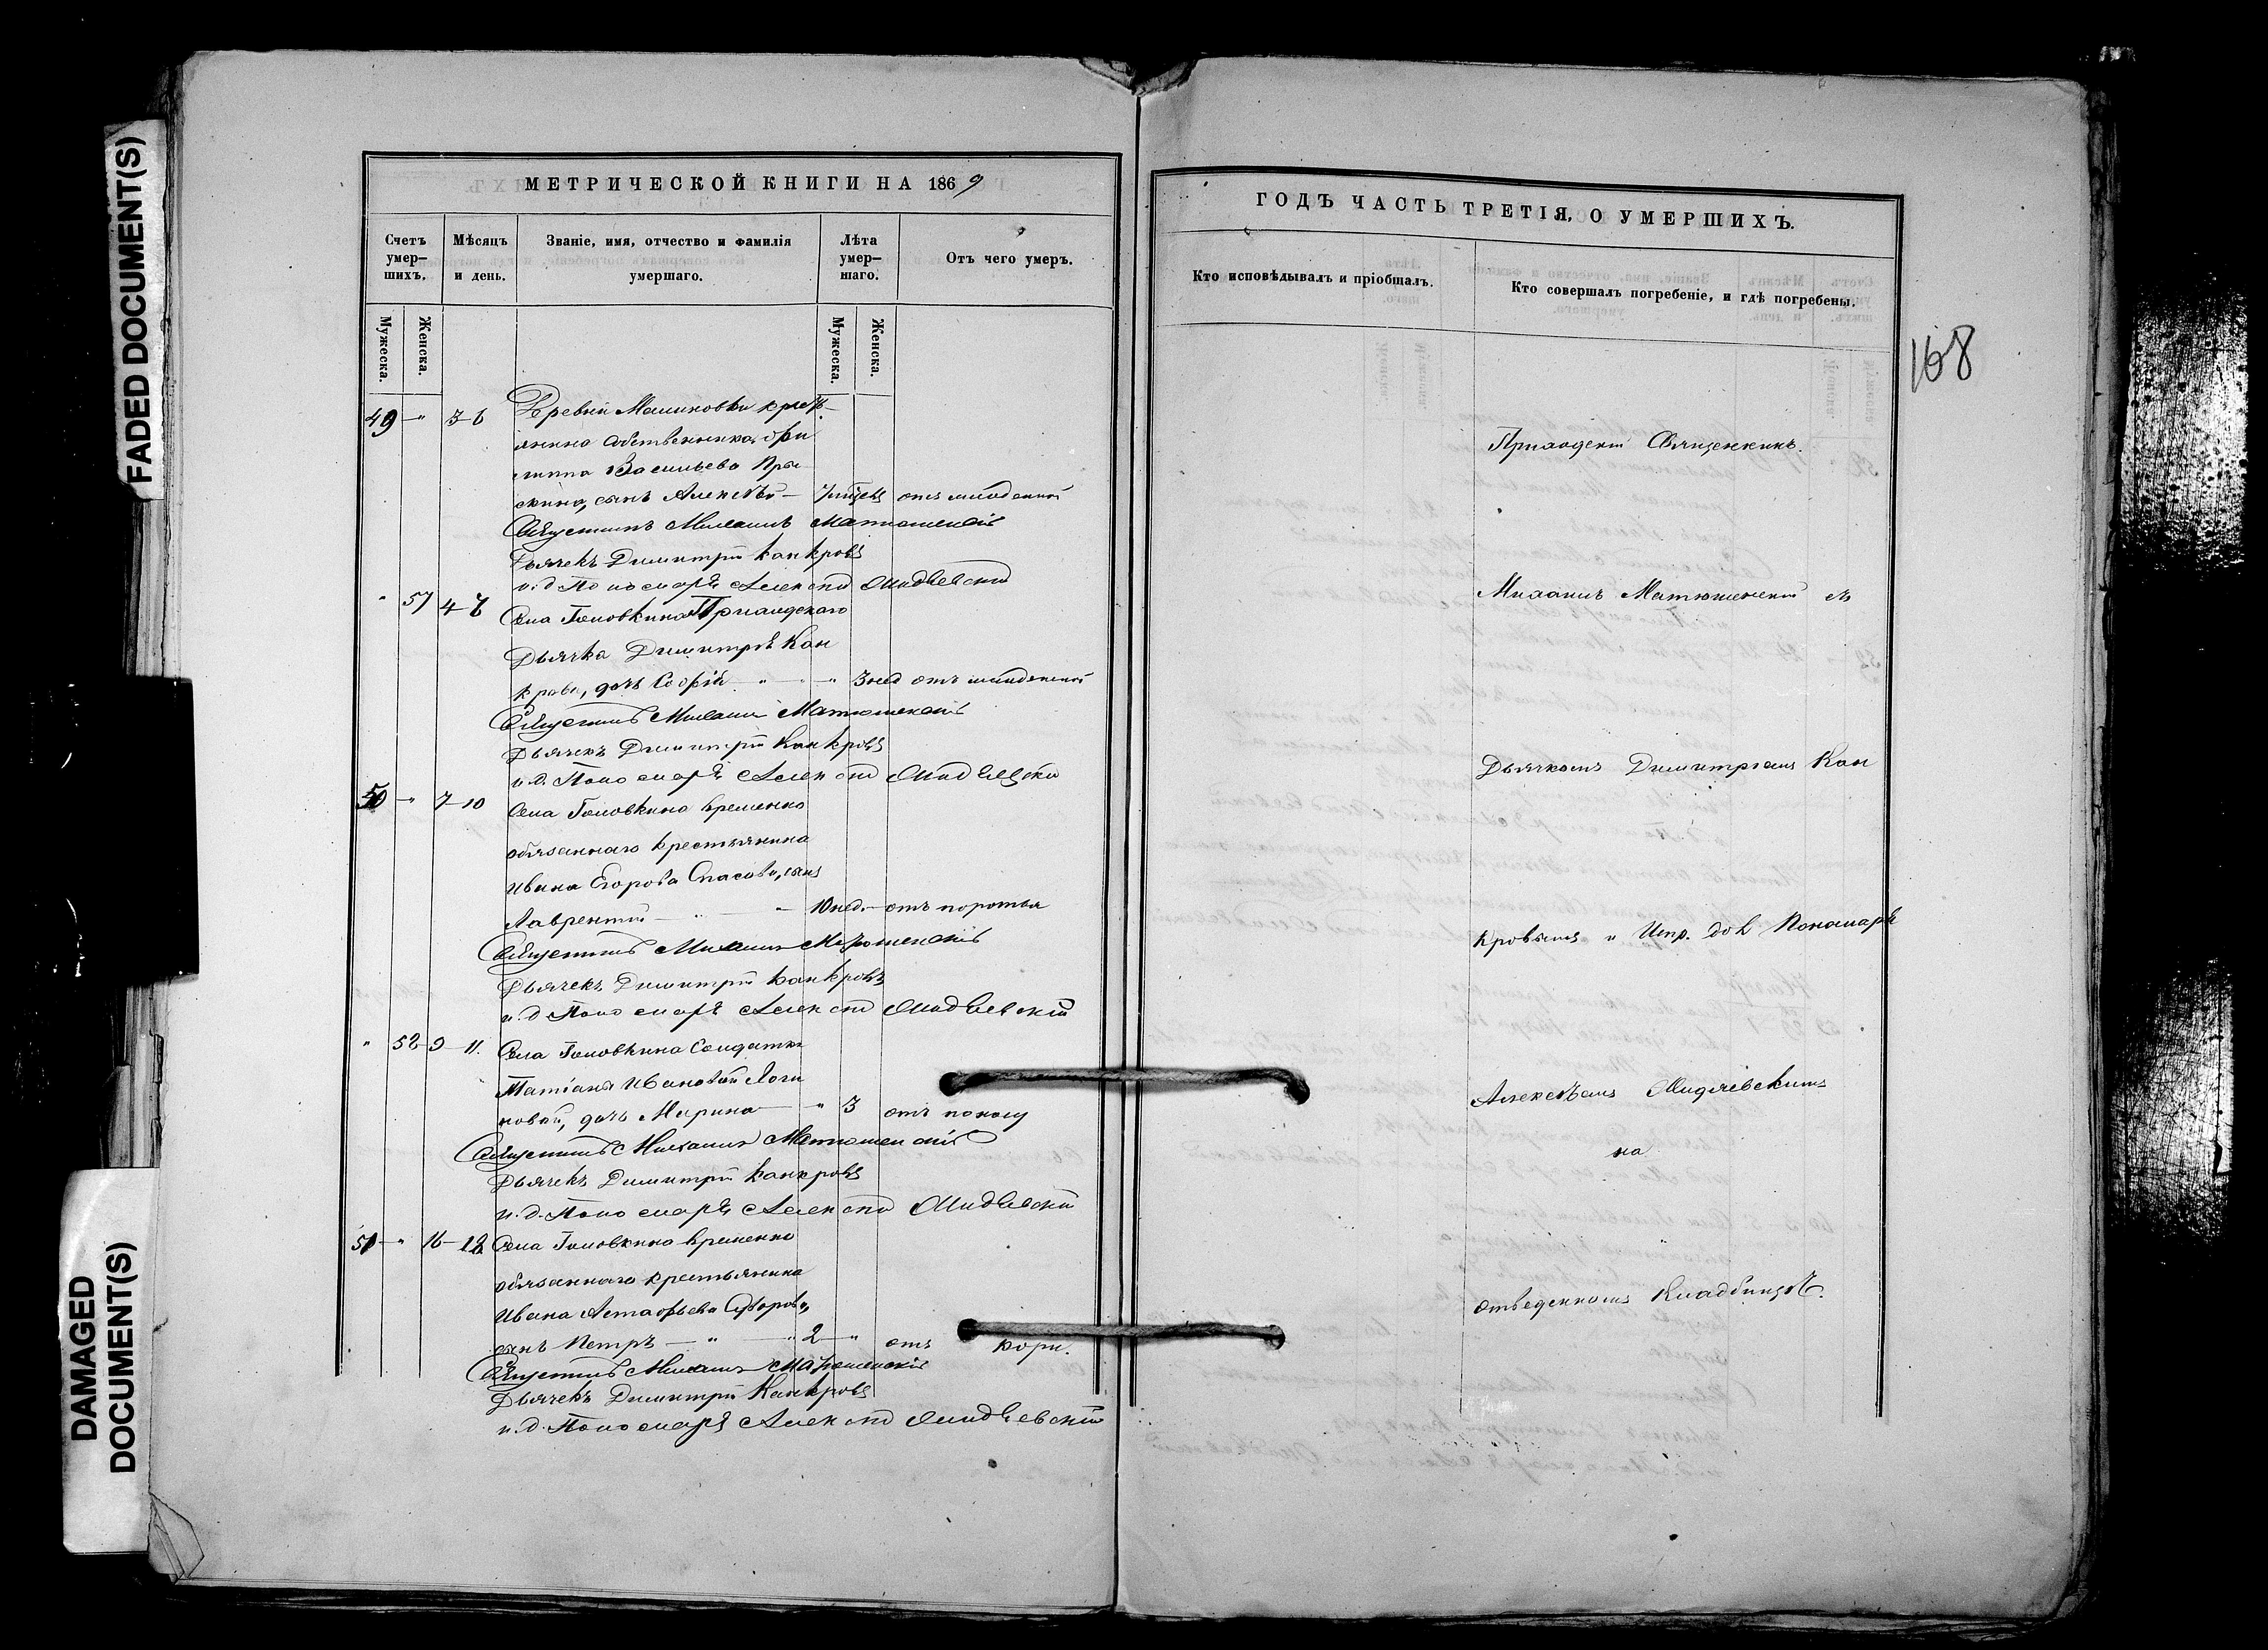 FADED DOCUMENT(S)
DAMAGED
DOCUMENT(S)
МЕТРИЧЕСКОЙ КНИГИ НА 1869
Счетъ умер-шихъ.
Мѣсяцъ и день.
Званіе, имя, отчество и фамилія умершаго.
Лѣта умер-шаго.
Отъ чего умеръ.
Мужеска.
Женска.
Мужеска.
Женска.
49 - " 3-6 Деревни Малиновки крестья-
янина собственника Фи
липпа Васильева
сынъ Алексѣй - 7 от младенчес
Священникъ Михаилъ Матюшенскій
Дьячекъ Димитрій Канкровъ
и. д. Пономаря Алексѣй Мидлевскій
" 57 4-7 Села Головкина Приходскаго
Дьячка Димитрія Кан
крова, дочь Софія - " - " 3 нед отъ младенческой
Священникъ Михаилъ Матюшенскій
Дьячекъ Димитрій Канкровъ
и. д. Пономаря Алексѣй Мидлевскій
50 - " 7-10 Села Головкина временно
обязаннаго крестьянина
Ивана Егорова Спасова, сынъ
Лаврентій - " - " 10 нед. - отъ
Священникъ Михаилъ Матюшенскій
Дьячекъ Димитрій Канкровъ
и. д. Пономаря Алексѣй Мидлевскій
" 58 9-11. Села Головкина Солдатки
Татіаны Ивановой Логи
новой, дочь Марина - " 3 отъ поносу
Священникъ Михаилъ Матюшенскій
Дьячекъ Димитрій Канкровъ
и. д. Пономаря Алексѣй Мидлевскій
51 - " 16-18 Села Головкина временно
обязаннаго крестьянина
Ивана Астафьева
сынъ Петръ - " - " 2 - " отъ кори.
Священникъ Михаилъ Матюшенскій
Дьячекъ Димитрій Канкровъ
и. д. Пономаря Алексѣй Мидлевскій
ГОДЪ ЧАСТЬ ТРЕТІЯ, О УМЕРШИХЪ.
Кто исповѣдывалъ и пріобщалъ.
Кто совершалъ погребеніе, и гдѣ погребены.
168
Приходскій Священникъ
Михаилъ Матюшенскій съ
Дьячкомъ Димитріемъ Кан
кровымъ и Испр. дол. Пономаря
Алексѣемъ Мидлевскимъ
на
отведенномъ Кладбищѣ.